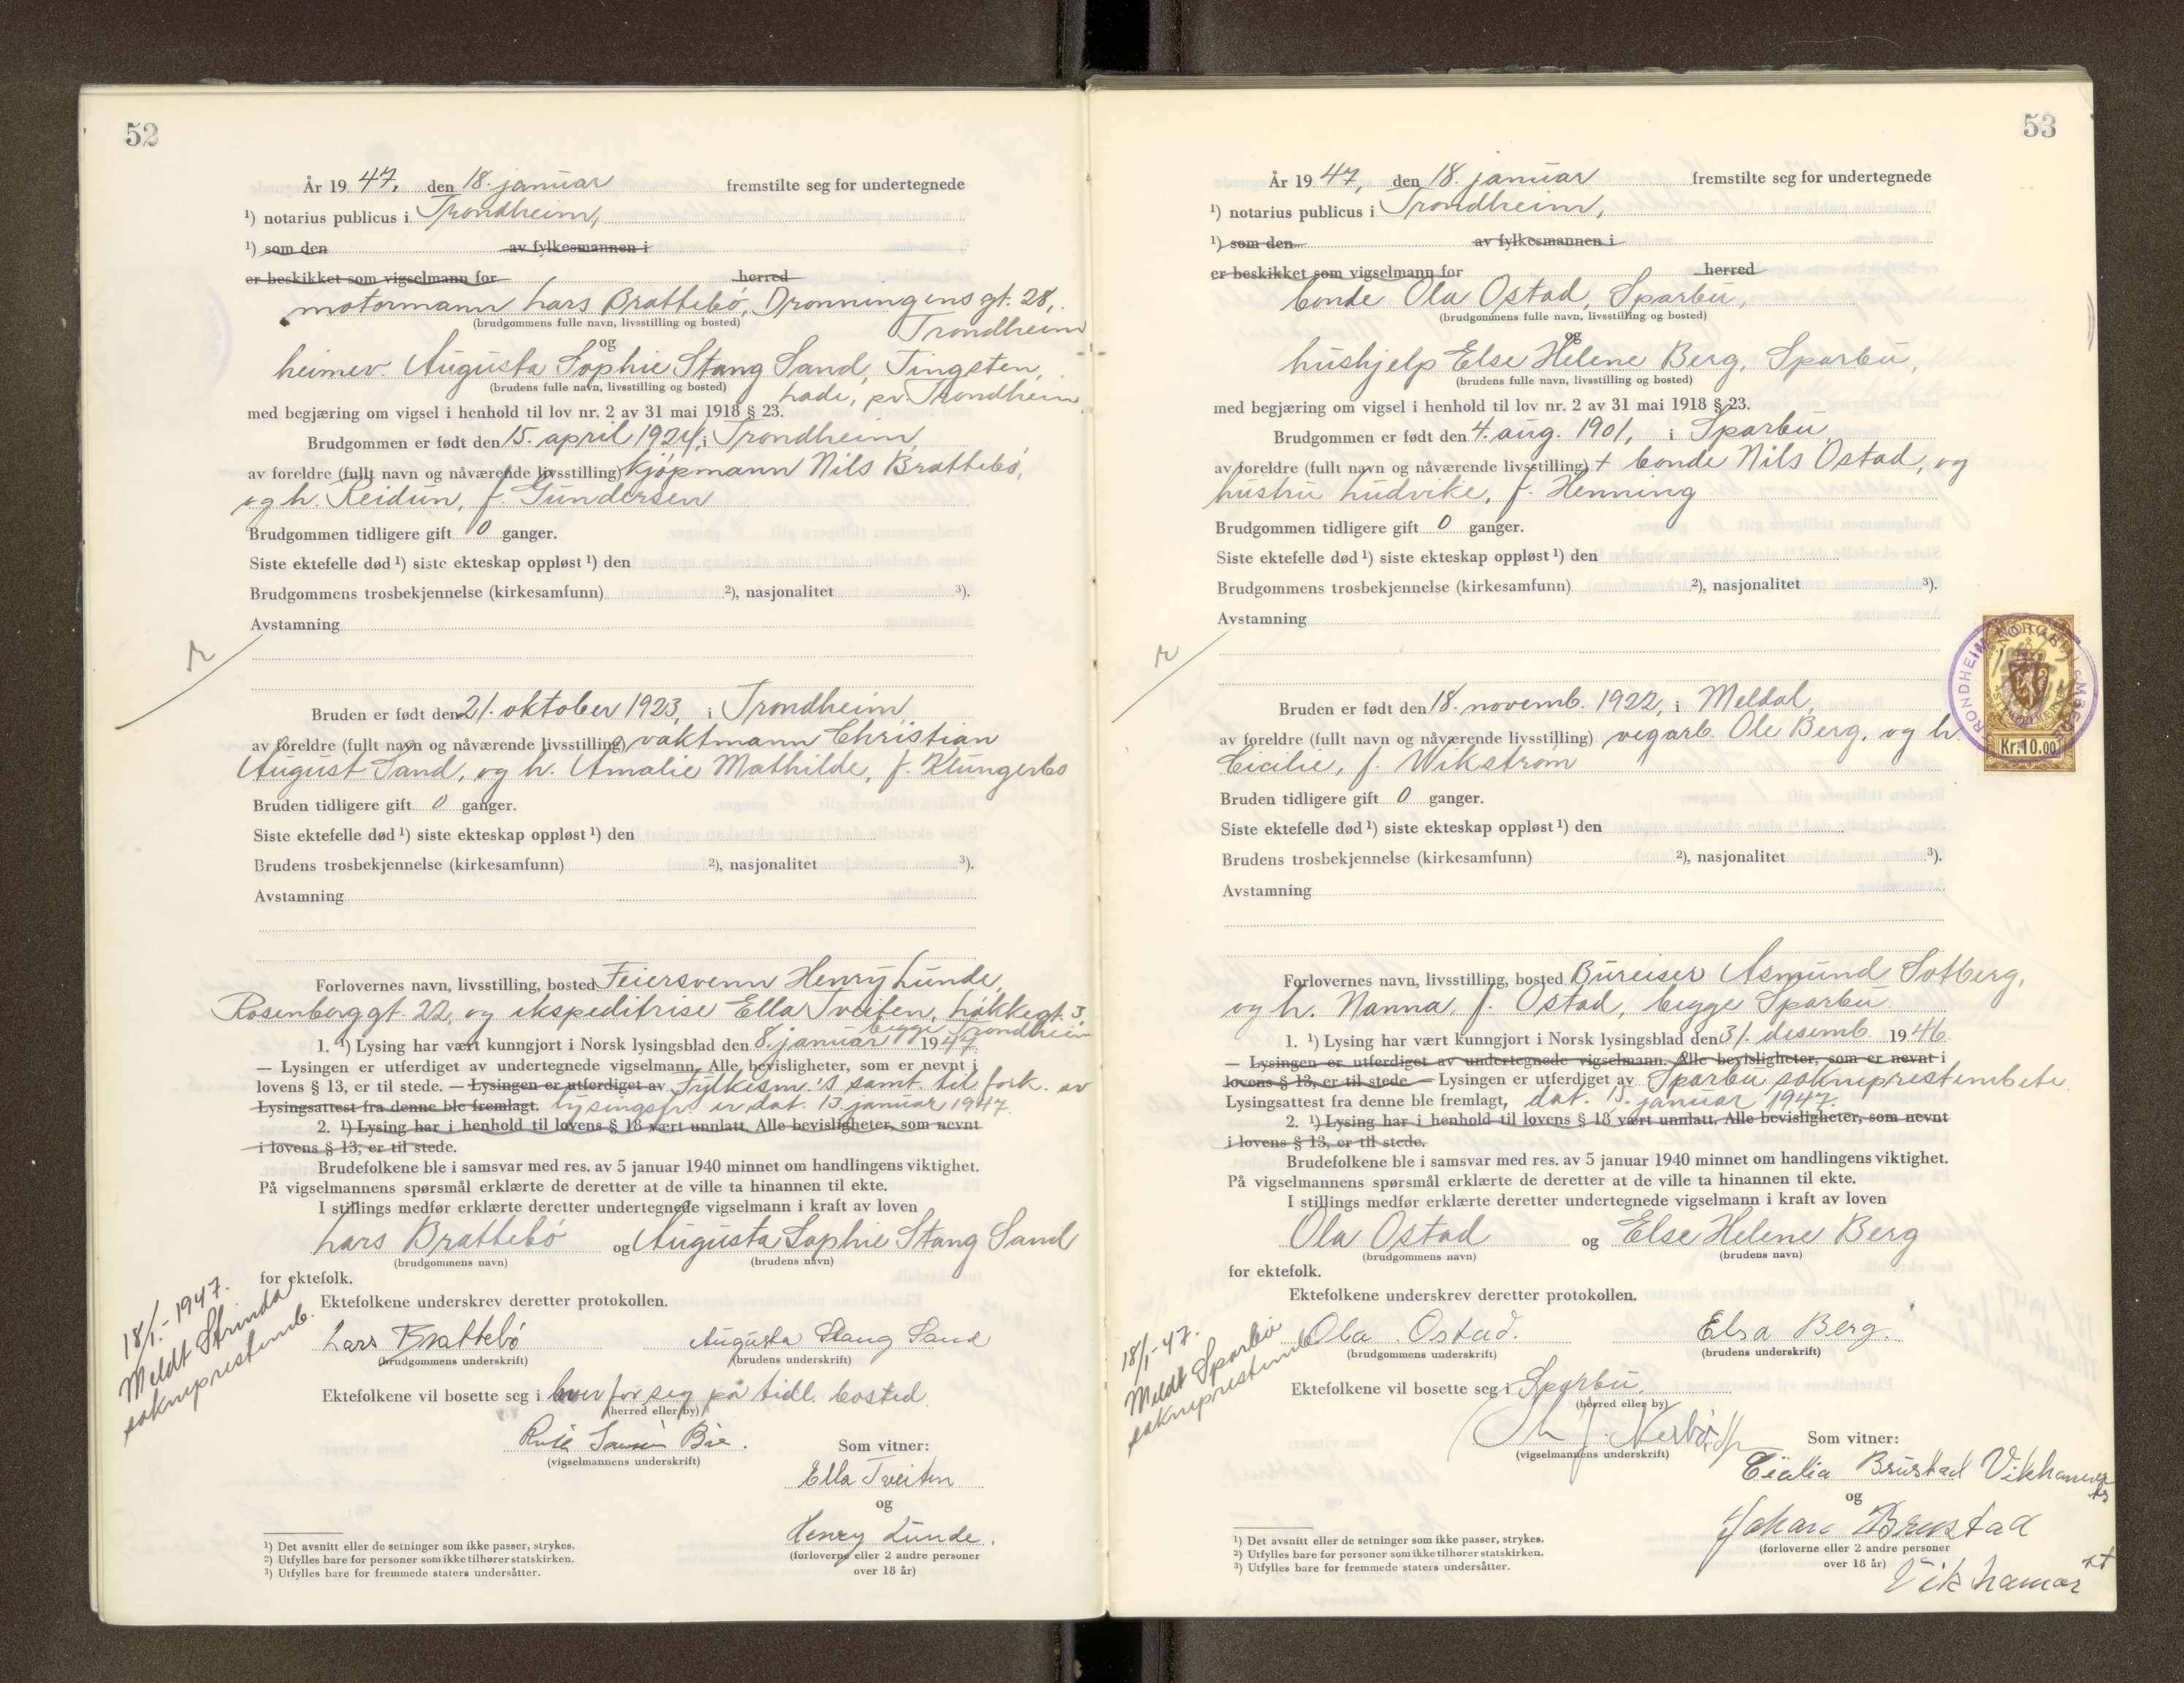 52
År 1947, den 18. januar fremstilte seg for undertegnede
¹) notarius publicus i Trondheim,
¹) som den av fylkesmannen i
er beskikket som vigselmann for herred
motormann Lars Brattebö, Dronningens gt. 28,
(brudgommens fulle navn, livsstilling og bosted) Trondheim
og
heimev. Augusta Sophie Stang Sand, Tingsten,
(brudens fulle navn, livsstilling og bosted) Lade, pr. Trondheim,
med begjæring om vigsel i henhold til lov nr. 2 av 31 mai 1918 § 23.
Brudgommen er født den 15. april 1924, i Trondheim,
av foreldre (fullt navn og nåværende livsstilling) kjöpmann Nils Brattebö,
og h. Reidun, f. Gundersen
Brudgommen tidligere gift 0 ganger.
Siste ektefelle død ¹) siste ekteskap oppløst ¹) den
Brudgommens trosbekjennelse (kirkesamfunn) ²), nasjonalitet ³).
Avstamning
Bruden er født den 21. oktober 1923, i Trondheim
av foreldre (fullt navn og nåværende livsstilling) vaktmann Christian
August Sand, og h. Amalie Mathilde, f. Klungerbo
Bruden tidligere gift 0 ganger.
Siste ektefelle død ¹) siste ekteskap oppløst ¹) den
Brudens trosbekjennelse (kirkesamfunn) ²), nasjonalitet ³).
Avstamning
Forlovernes navn, livsstilling, bosted Feiersvenn Henry Lunde,
Rosenborg gt. 22, og ekspeditrise Ella Tveiten, Løkkegt. 3,
begge Trondheim
1. ¹) Lysing har vært kunngjort i Norsk lysingsblad den 8. januar 1947
— Lysingen er utferdiget av undertegnede vigselmann. Alle bevisligheter, som er nevnt i
lovens § 13, er til stede. — Lysingen er utferdiget av Fylkesm.'s samt. til fork. av
Lysingsattest fra denne ble fremlagt. lysingsfr. er dat. 13. januar 1947.
2. ¹) Lysing har i henhold til lovens § 18 vært unnlatt. Alle bevisligheter, som nevnt
i lovens § 13, er til stede.
Brudefolkene ble i samsvar med res. av 5 januar 1940 minnet om handlingens viktighet.
På vigselmannens spørsmål erklærte de deretter at de ville ta hinannen til ekte.
I stillings medfør erklærte deretter undertegnede vigselmann i kraft av loven
Lars Brattebö og Augusta Sophie Stang Sand
(brudgommens navn) (brudens navn)
for ektefolk.
Ektefolkene underskrev deretter protokollen.
18/1.-1947.
Meldt Strinda
sokneprestemb.
Lars Brattebö Augusta Stang Sand
(brudgommens underskrift) (brudens underskrift)
Ektefolkene vil bosette seg i hver for seg på tidl. bosted.
(herred eller by)
(vigselmannens underskrift)
Som vitner:
Ella Tveiten
og
Henry Lunde.
(forloverne eller 2 andre personer
over 18 år)
¹) Det avsnitt eller de setninger som ikke passer, strykes.
²) Utfylles bare for personer som ikke tilhører statskirken.
³) Utfylles bare for fremmede staters undersåtter.
53
År 1947, den 18. januar fremstilte seg for undertegnede
¹) notarius publicus i Trondheim,
¹) som den av fylkesmannen i
er beskikket som vigselmann for herred
bonde Ola Ostad, Sparbu,
(brudgommens fulle navn, livsstilling og bosted)
og
hushjelp Else Helene Berg, Sparbu,
(brudens fulle navn, livsstilling og bosted)
med begjæring om vigsel i henhold til lov nr. 2 av 31 mai 1918 § 23.
Brudgommen er født den 4. aug. 1901, i Sparbu
av foreldre (fullt navn og nåværende livsstilling) + bonde Nils Ostad, og
hustru Ludvike, f. Henning
Brudgommen tidligere gift 0 ganger.
Siste ektefelle død ¹) siste ekteskap oppløst ¹) den
Brudgommens trosbekjennelse (kirkesamfunn) ²), nasjonalitet ³).
Avstamning
Bruden er født den 18. novemb. 1922, i Meldal,
av foreldre (fullt navn og nåværende livsstilling) vegarb. Ole Berg, og h.
Cicilie, f. Wikström
TRONDHEIM
Kr. 10.00
Bruden tidligere gift 0 ganger.
Siste ektefelle død ¹) siste ekteskap oppløst ¹) den
Brudens trosbekjennelse (kirkesamfunn) ²), nasjonalitet ³).
Avstamning
Forlovernes navn, livsstilling, bosted Bureiser Asmund Sotberg,
og h. Nanna, f. Ostad, begge Sparbu
1. ¹) Lysing har vært kunngjort i Norsk lysingsblad den 31. desemb. 1946
— Lysingen er utferdiget av undertegnede vigselmann. Alle bevisligheter, som er nevnt i
lovens § 13, er til stede. — Lysingen er utferdiget av Sparbu sokneprestembete
Lysingsattest fra denne ble fremlagt, dat. 15. januar 1947.
2. ¹) Lysing har i henhold til lovens § 18 vært unnlatt. Alle bevisligheter, som nevnt
i lovens § 13, er til stede.
Brudefolkene ble i samsvar med res. av 5 januar 1940 minnet om handlingens viktighet.
På vigselmannens spørsmål erklærte de deretter at de ville ta hinannen til ekte.
I stillings medfør erklærte deretter undertegnede vigselmann i kraft av loven
Ola Ostad og Else Helene Berg
(brudgommens navn) (brudens navn)
for ektefolk.
Ektefolkene underskrev deretter protokollen.
18/1-47.
Meldt Sparbu
sokneprestemb
Ola Ostad. Elsa Berg.
(brudgommens underskrift) (brudens underskrift)
Ektefolkene vil bosette seg i Sparbu.
(herred eller by)
(vigselmannens underskrift)
Som vitner:
Brustad Vikhammer
og
Johan Brustad
(forloverne eller 2 andre personer
over 18 år) Vikhamar
¹) Det avsnitt eller de setninger som ikke passer, strykes.
²) Utfylles bare for personer som ikke tilhører statskirken.
³) Utfylles bare for fremmede staters undersåtter.